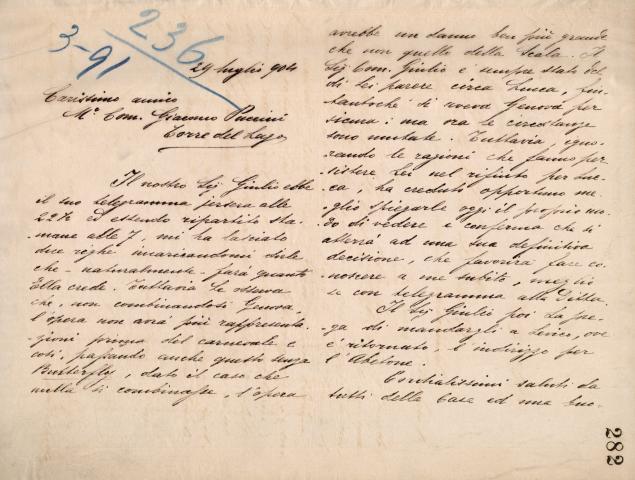 236
3-91
29 luglio 904
Carissimo amico
M.º Com. Giacomo Puccini
Torre del Lago
Il nostro Sig. Giulio ebbe
il suo telegramma jersera alle
22½ ed essendo ripartito sta-
mane alle 7, mi ha lasciato
due righe incaricandomi dirle
che - naturalmente - farà quanto
Ella crede. Tuttavia Le osserva
che, non combinandosi Genova,
l'opera non avrà più rappresenta-
zioni prima del carnevale e
così, passando anche questo senza
Butterfly, dato il caso che
nulla si combinasse, l'opera
avrebbe un danno ben più grande
che non quello della Scala. Il
Sig. Com. Giulio è sempre stato del
di lei parere circa Lucca, fin-
tantochè di aveva Genova per
sicura: ma ora le circostanze
sono mutate. Tuttavia, igno-
rando le ragioni che fanno per-
sistere Lei nel rifiuto per Luc-
ca, ha creduto opportuno me-
glio spiegarle oggi il proprio mo-
do di vedere e conferma che si
atterrà ad una sua definitiva
decisione, che favorirà fare co-
noscere a me subito, meglio
se con telegramma alla Ditta.
Il Sig. Giulio poi La pre-
ga di mandargli a Levico, ove
è ritornato, l'indirizzo per
l'Abetone.
Cordialissimi saluti da
tutti della Casa ed una buo-
282